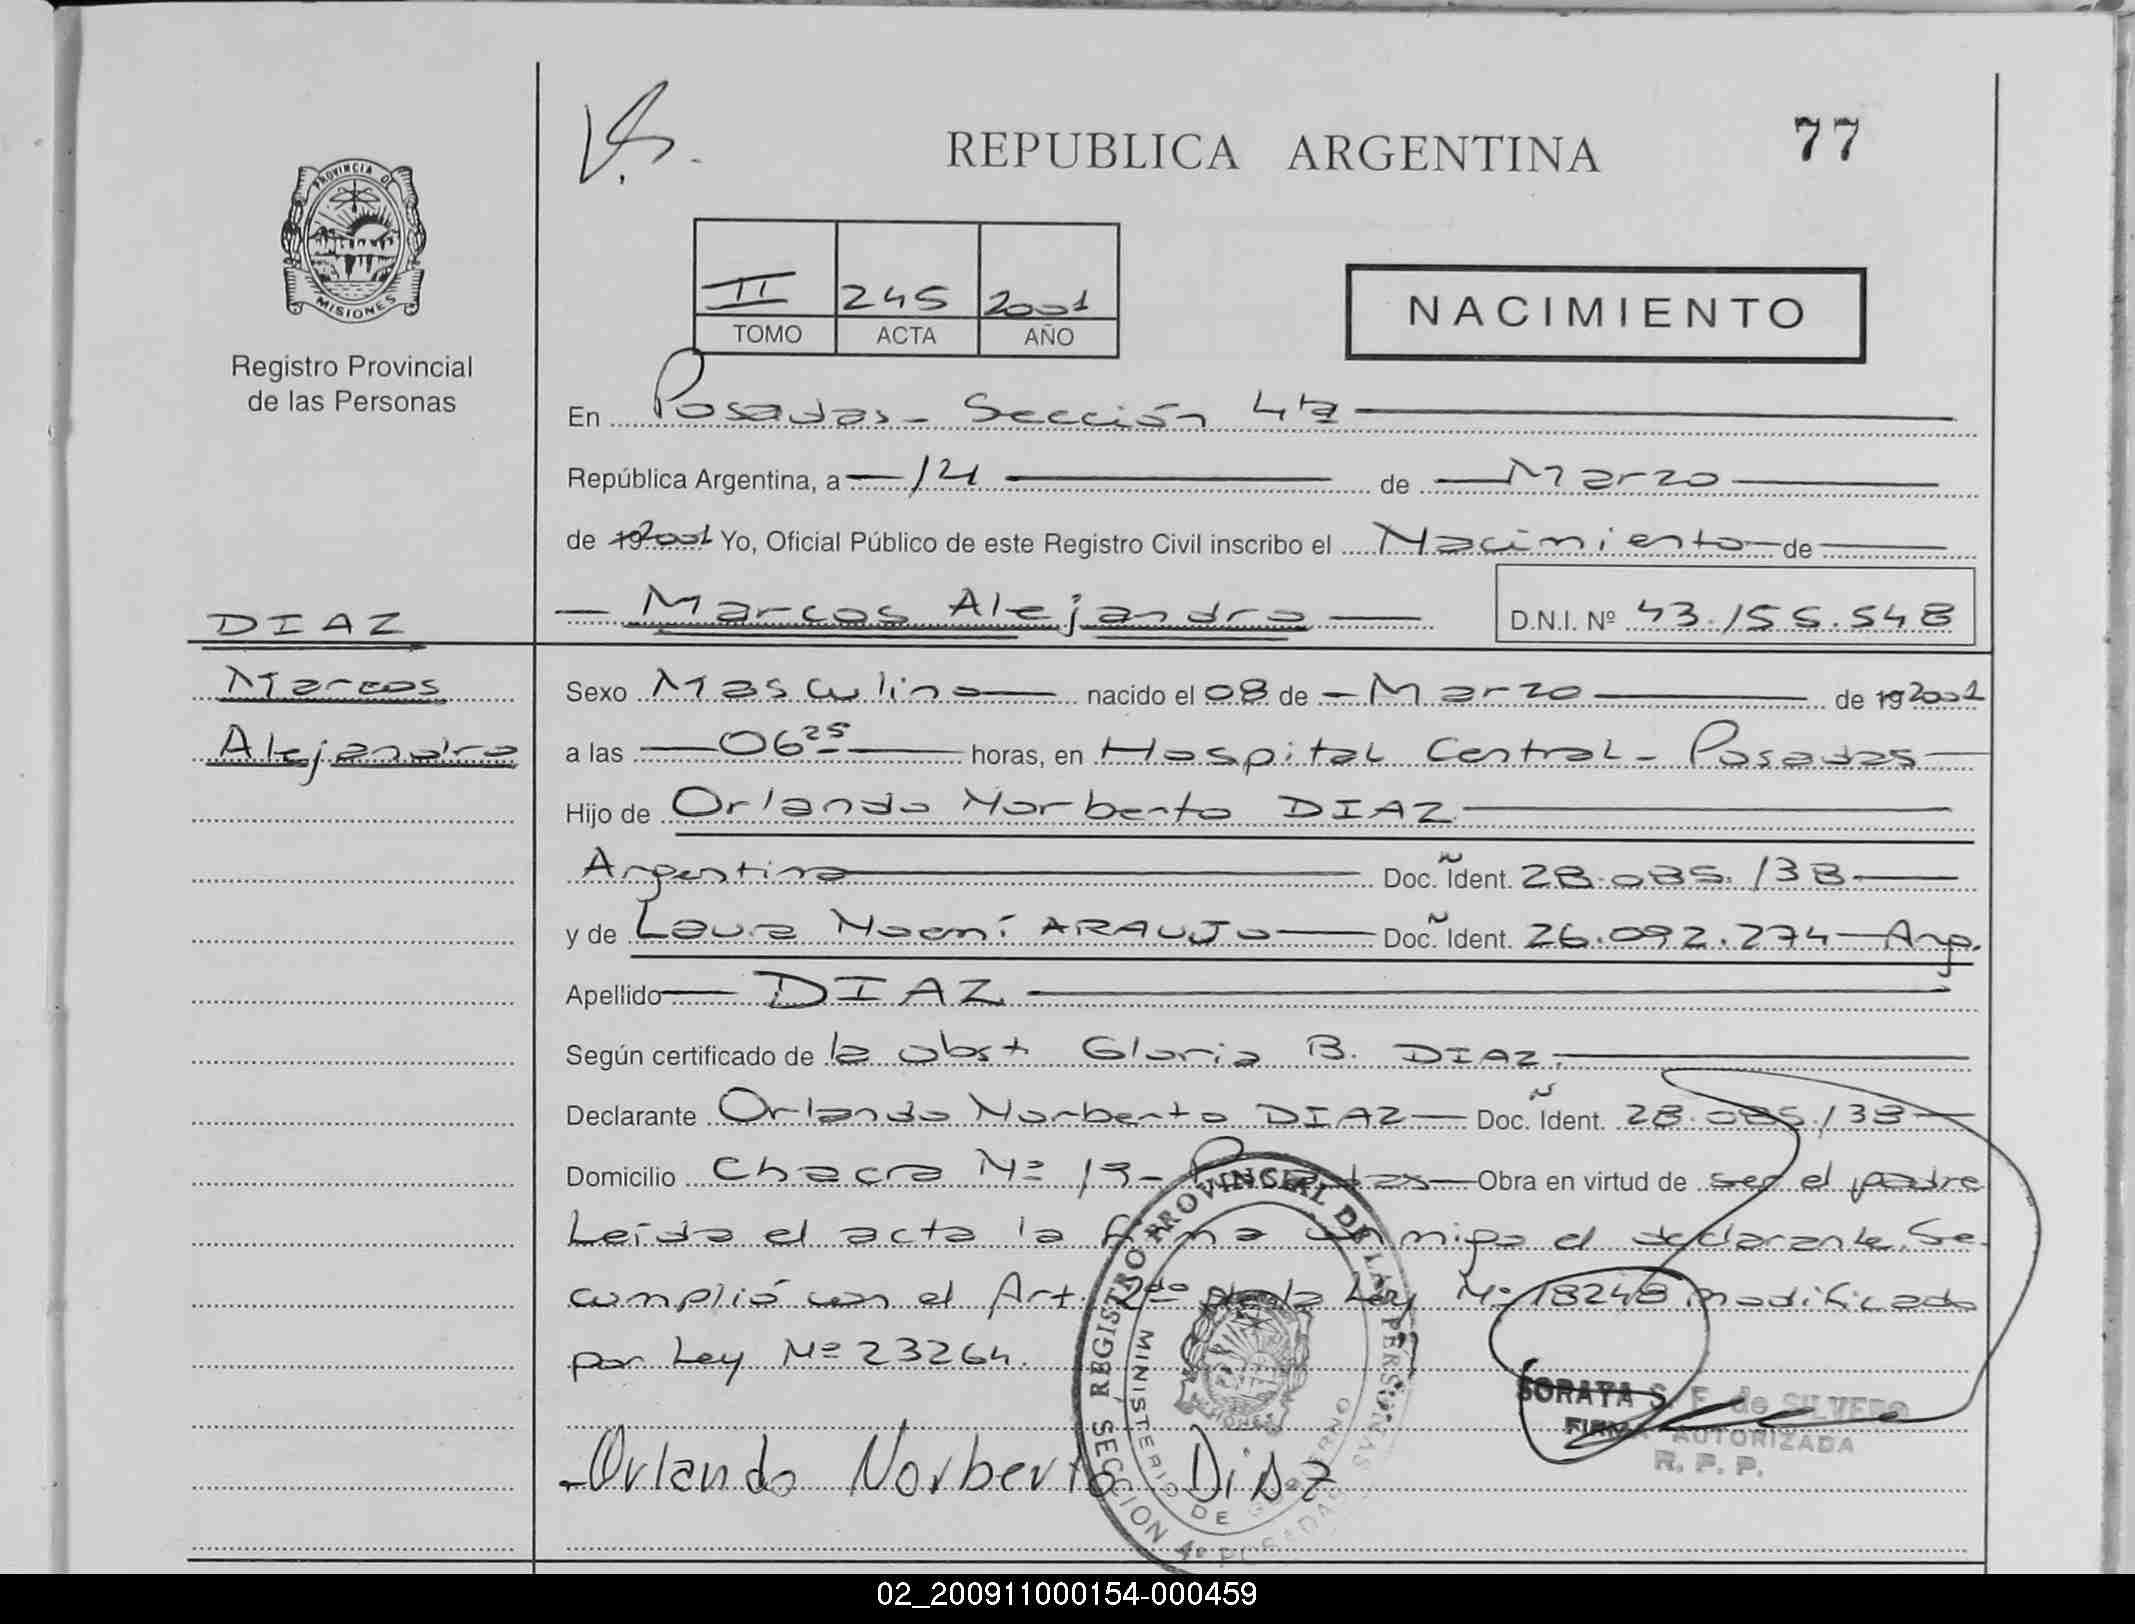 REPUBLICA ARGENTINA
77
PROVINCIA DE
MISIONES
Registro Provincial
de las Personas
II 245 2001
TOMO ACTA AÑO
NACIMIENTO
En Posadas - Sección 4ta
República Argentina, a 14 de Marzo
de 192001 Yo, Oficial Público de este Registro Civil inscribo el Nacimiento de
Marcos Alejandro D.N.I. Nº 43.155.548
DIAZ
Marcos
Alejandro
Sexo Masculino nacido el 08 de Marzo de 192001
a las 06 25 horas, en Hospital Central - Posadas
Hijo de Orlando Norberto DIAZ
Argentina Doc. Ñ Ident. 28.085.138
y de Laura Noemí ARAUJO Doc. Ñ Ident. 26.092.274 - Arg.
Apellido DIAZ
Según certificado de la obst Gloria B. DIAZ.
Declarante Orlando Norberto DIAZ Doc. Ñ Ident. 28.085.138
Domicilio Chacra Nº 19 - Posadas Obra en virtud de ser el padre
Leída el acta la firma conmigo el declarante. Se
cumplió con el Art. 2do de la Ley Nº 18248 modificado
por Ley Nº 23264.
Orlando Norberto Diaz
REGISTRO PROVINCIAL DE LAS PERSONAS
MINISTERIO DE GOBIERNO
SECCION 4º POSADAS
SORAYA S. F. de SILVERO
FIRMA AUTORIZADA
R. P. P.
02_200911000154-000459